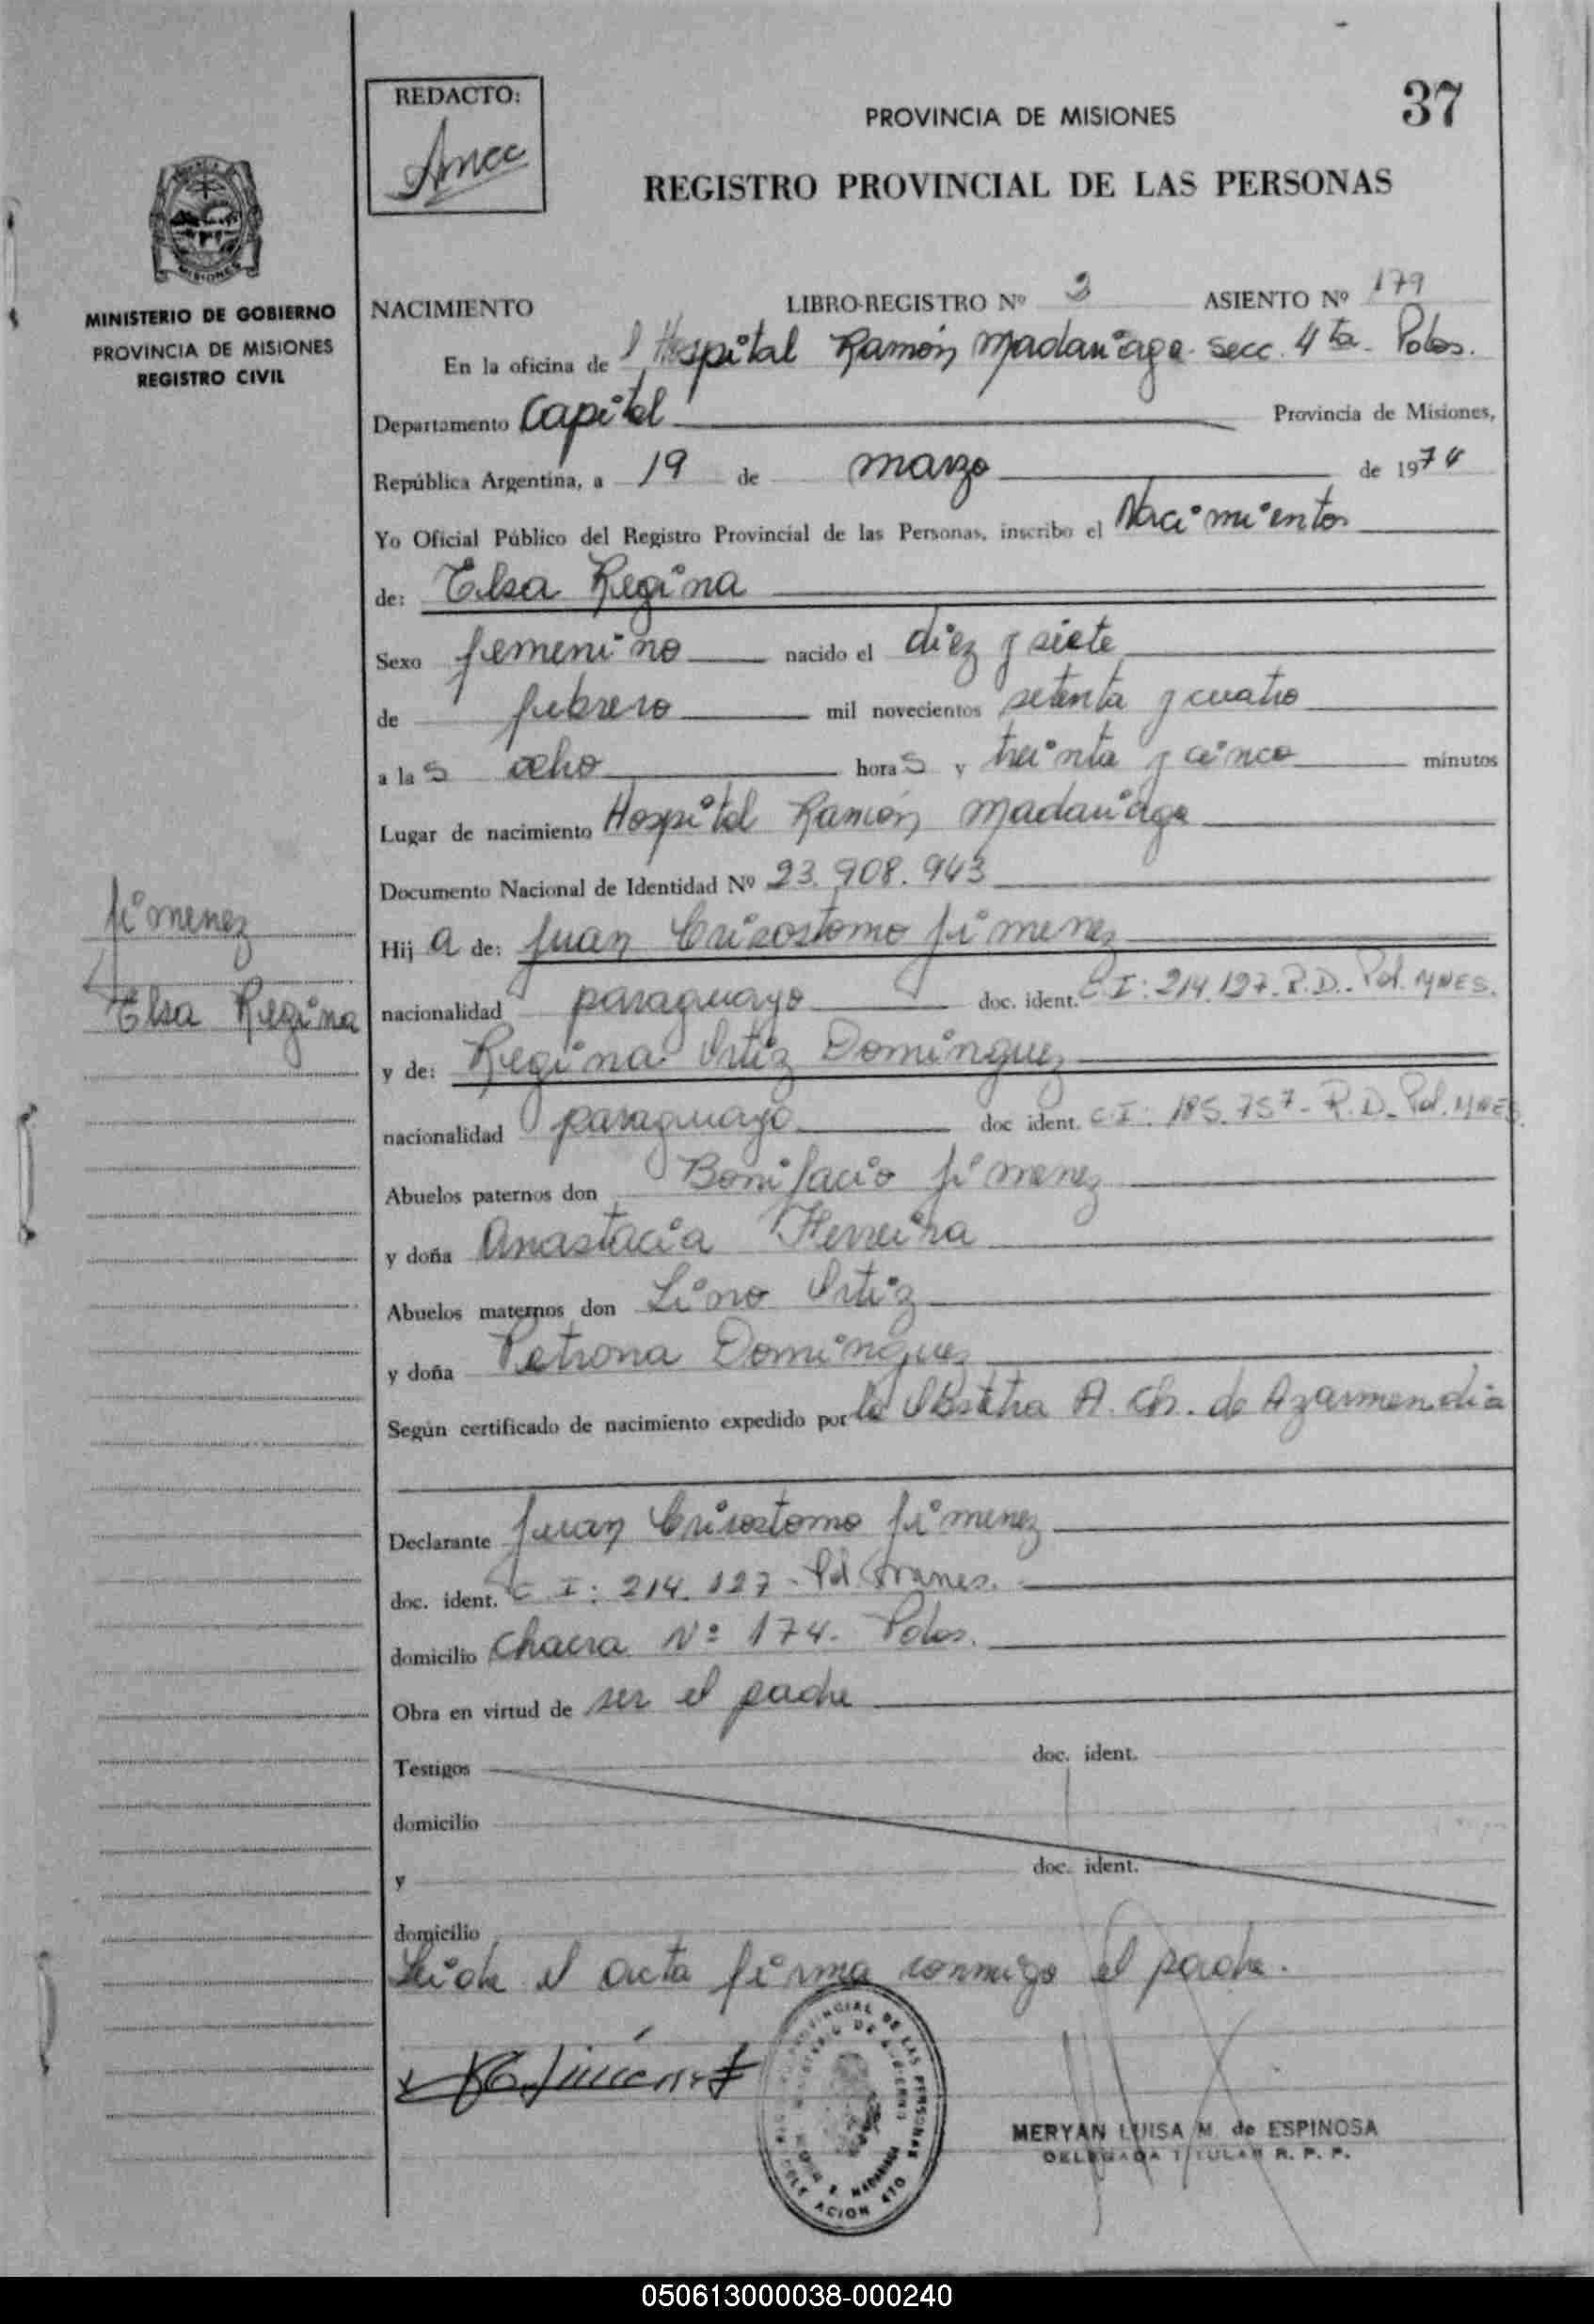 REDACTO:
37
PROVINCIA DE MISIONES
REGISTRO PROVINCIAL DE LAS PERSONAS
MINISTERIO DE GOBIERNO
PROVINCIA DE MISIONES
REGISTRO CIVIL
NACIMIENTO LIBRO-REGISTRO Nº 3 ASIENTO Nº 179
En la oficina de l Hospital Ramón Madariaga. Secc. 4ta. Pdas.
Departamento Capital Provincia de Misiones,
República Argentina, a 19 de marzo de 1974
Yo Oficial Público del Registro Provincial de las Personas, inscribo el Nacimiento
de: Elsa Regina
Sexo femenino nacido el diez y siete
de febrero mil novecientos setenta y cuatro
a las ocho horas y treinta y cinco minutos
Lugar de nacimiento Hospital Ramón Madariaga
Documento Nacional de Identidad Nº 23.908.943
Jimenez
Elsa Regina
Hija de: Juan Crisostomo Jimenez
nacionalidad paraguayo doc. ident. C.I: 214.127. P.D. Pol. MNES.
y de: Regina Ortiz Dominguez
nacionalidad paraguaya doc ident. C.I: 185.757 - P.D. Pol. MNES.
Abuelos paternos don Bonifacio Jimenez
y doña Anastacia Herreira
Abuelos maternos don Lino Ortiz
y doña Petrona Dominguez
Según certificado de nacimiento expedido por la Obstetra A. Ch. de Azarmendia
Declarante Juan Crisostomo Jimenez
doc. ident. C.I: 214.127 - Pol. Mnes.
domicilio Chacra Nº 174. Pdas.
Obra en virtud de ser el padre
Testigos doc. ident.
domicilio
y doc. ident.
domicilio
Leida el acta firma conmigo el padre.
MERYAN LUISA M. de ESPINOSA
DELEGADA TITULAR R. P. P.
050613000038-000240